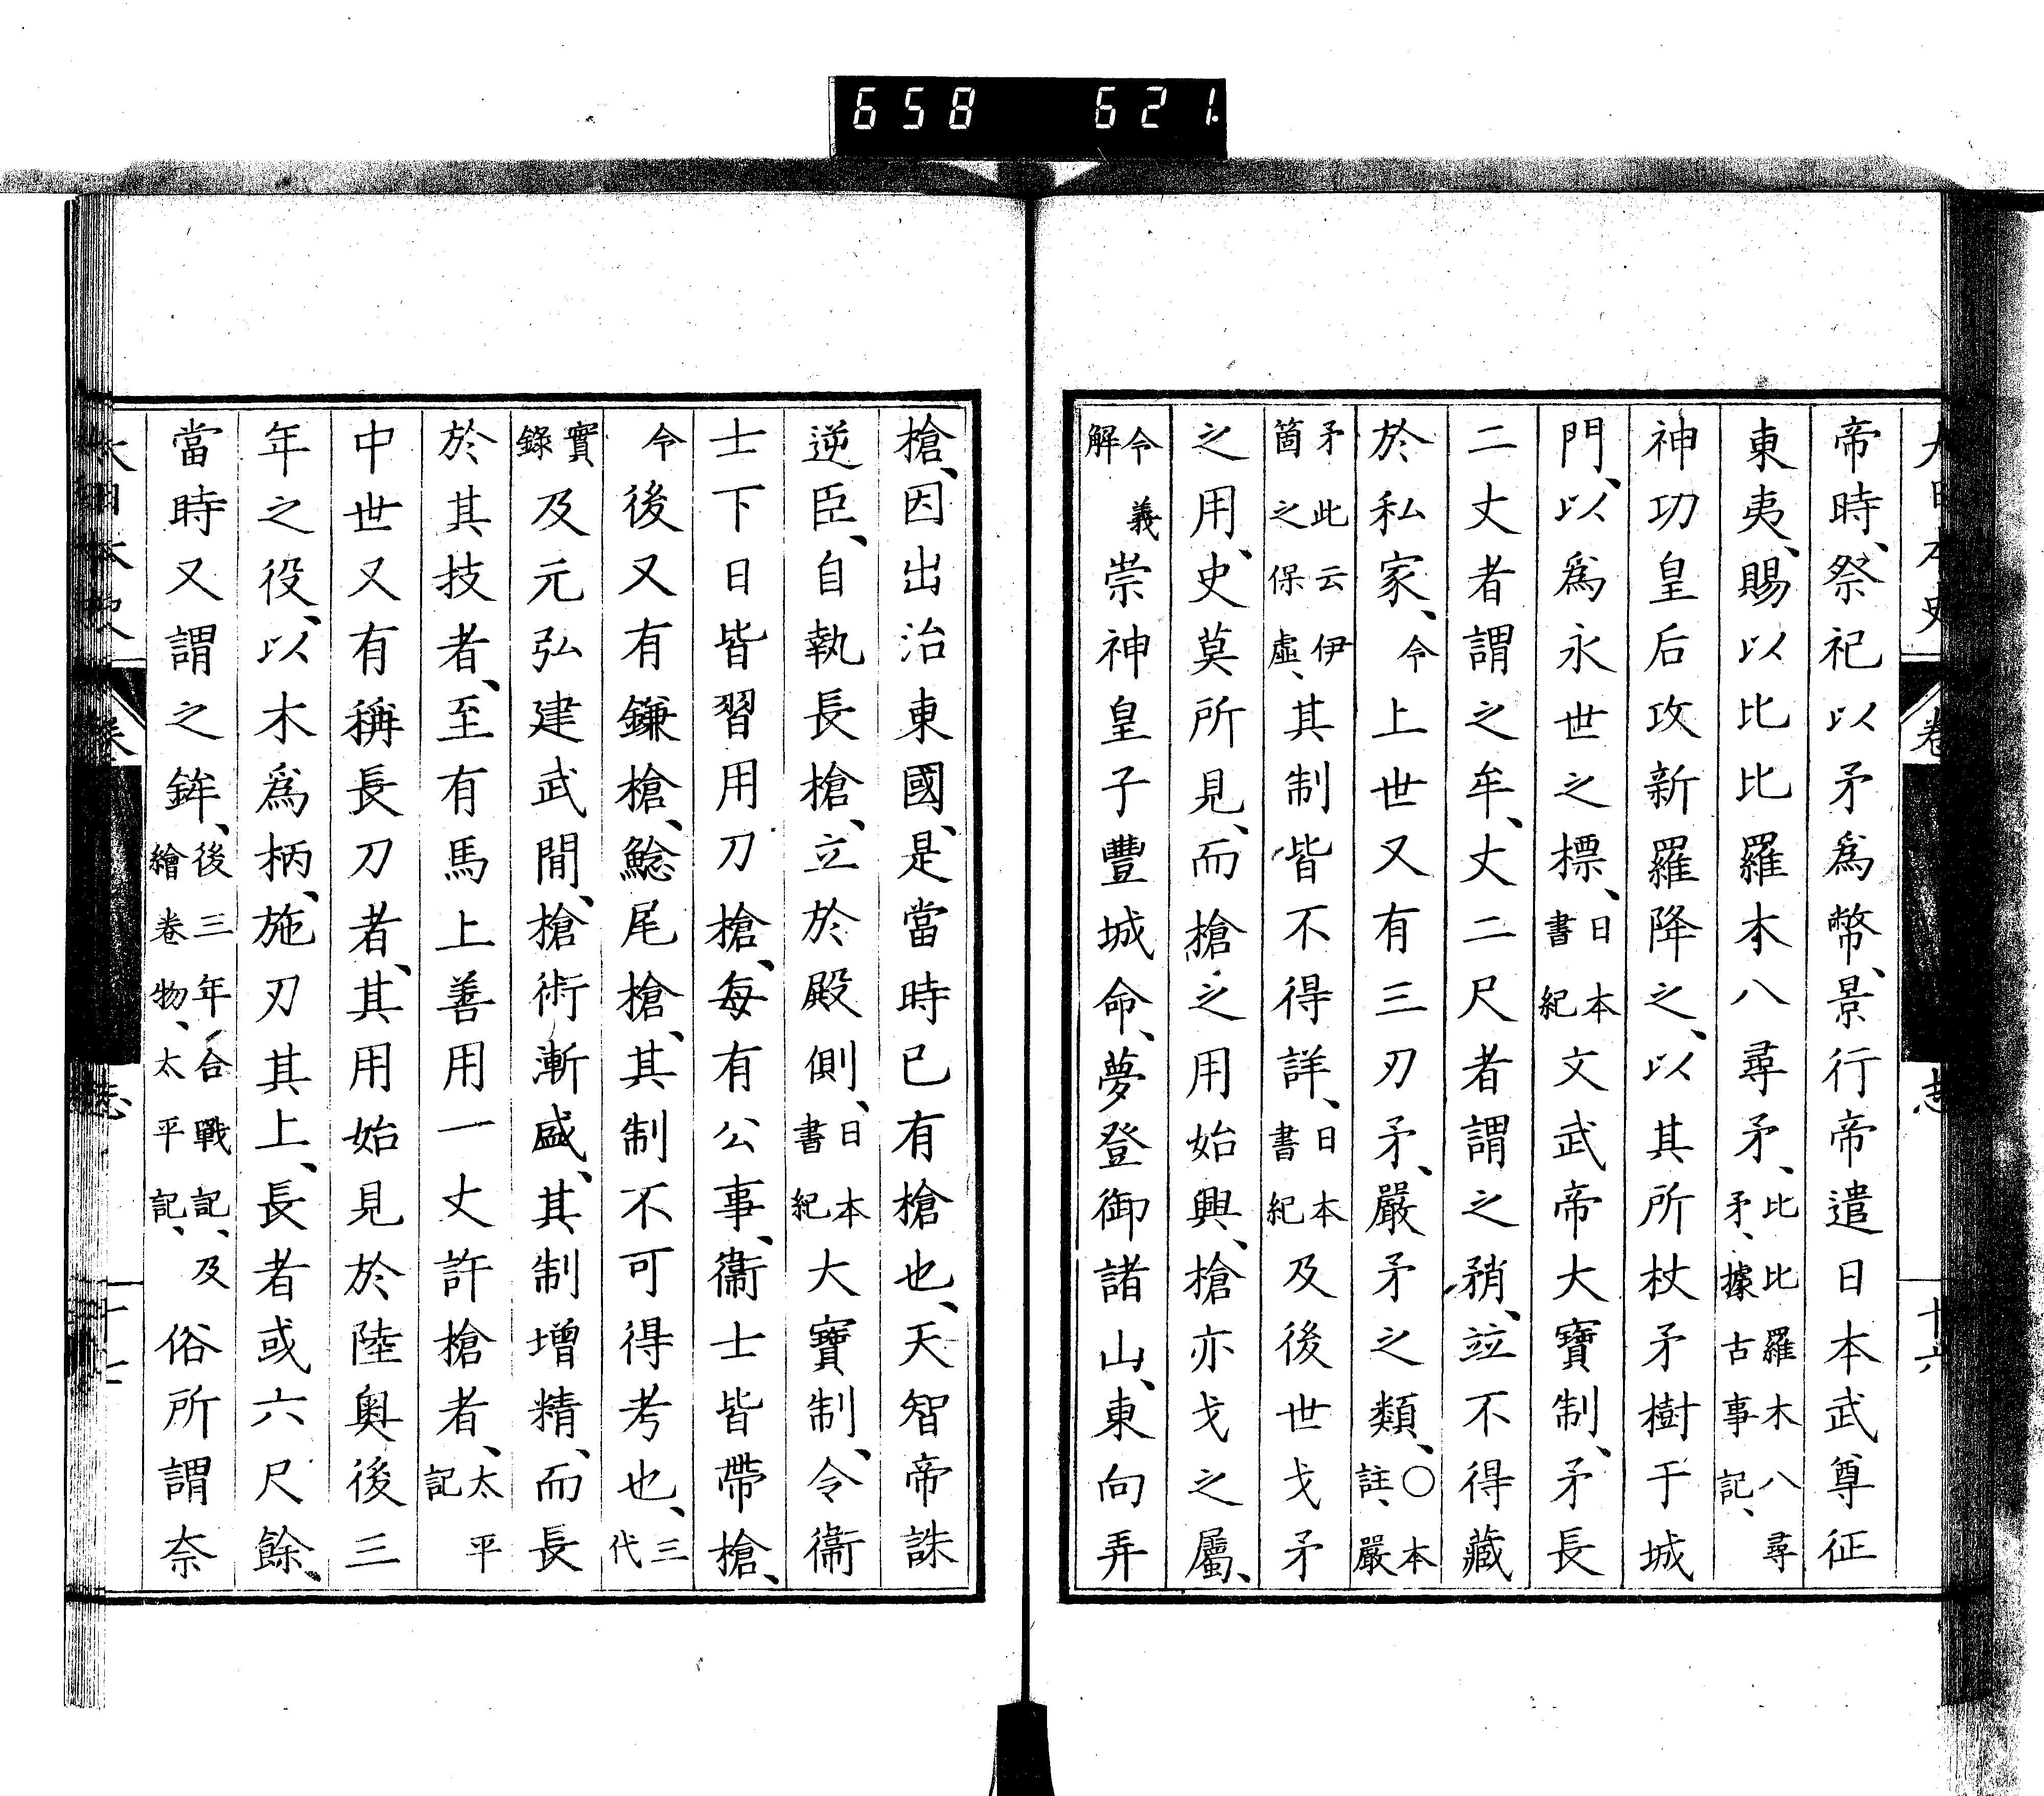 658 621
大日本史 卷 志 十六
帝時、祭祀以矛爲幣、景行帝遣日本武尊征
東夷、賜以比比羅木八尋矛、比比羅木八尋矛、據古事記、
神功皇后攻新羅降之、以其所杖矛樹于城
門、以爲永世之標、日本書紀文武帝大寶制、矛長
二丈者謂之牟、丈二尺者謂之矟、竝不得藏
於私家、令上世又有三刃矛、嚴矛之類、〇本註、嚴
矛此云伊箇之保虛、其制皆不得詳、日本書紀及後世戈矛
之用、史莫所見、而槍之用始興、槍亦戈之屬、
令義解崇神皇子豐城命、夢登御諸山、東向弄
槍、因出治東國、是當時已有槍也、天智帝誅
逆臣、自執長槍、立於殿側、日本書紀大寶制、令衞
士下日皆習用刀槍、每有公事、衞士皆帶槍、
令後又有鎌槍、鯰尾槍、其制不可得考也、三代
實錄及元弘建武間、槍術漸盛、其制增精、而長
於其技者、至有馬上善用一丈許槍者、太平記
中世又有稱長刀者、其用始見於陸奧後三
年之役、以木爲柄、施刃其上、長者或六尺餘、
當時又謂之鉾、後三年合戰記、及繪卷物、太平記、俗所謂奈
大日本史 卷 志 十七